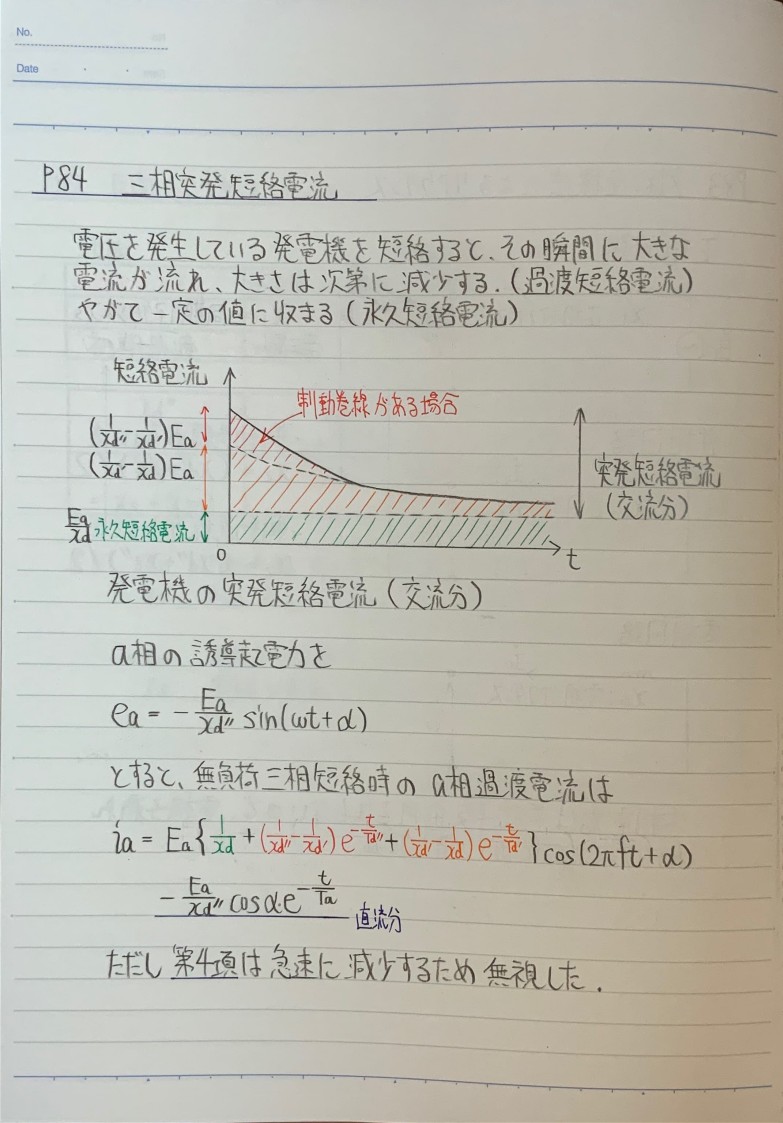 No.
Date
P84 三相突発短絡電流
電圧を発生している発電機を短絡すると、その瞬間に大きな
電流が流れ、大きさは次第に減少する.(過渡短絡電流)
やがて一定の値に収まる(永久短絡電流)
短絡電流
制動巻線がある場合
(1/xd''-1/xd')Ea
(1/xd'-1/xd)Ea
突発短絡電流
(交流分)
Ea/xd 永久短絡電流
0
t
発電機の突発短絡電流(交流分)
a相の誘導起電力を
ea = -Ea/xd'' sin(ωt+α)
とすると、無負荷三相短絡時のa相過渡電流は
ia = Ea{1/xd+(1/xd''-1/xd')e^-t/Td''+(1/xd'-1/xd)e^-t/Td'}cos(2πft+α)
-Ea/xd'' cosα・e^-t/Ta 直流分
ただし第4項は急速に減少するため無視した.